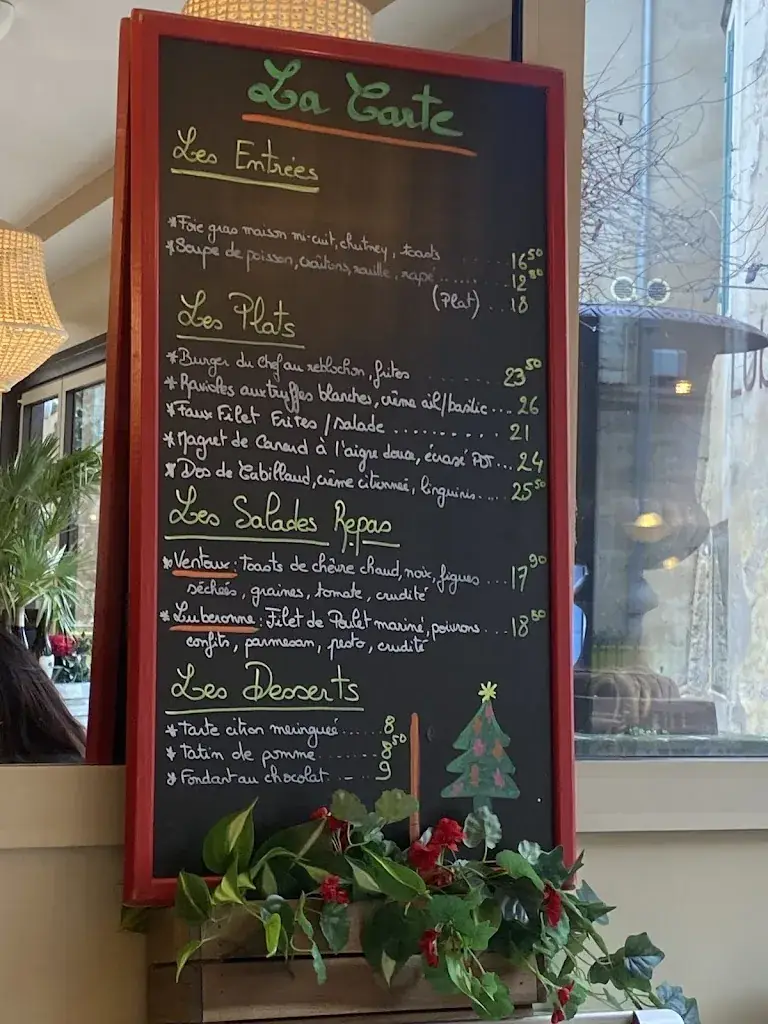 La Carte
Les Entrées
*Foie gras maison mi-cuit, chutney, toasts ..... 16⁵⁰
*Soupe de poisson, croûtons, rouille, rapé ...... 12⁸⁰
(Plat) .. 18
Les Plats
*Burger du chef au reblochon, frites ........ 23⁵⁰
*Ravioles aux truffes blanches, crème ail/basilic... 26
*Faux Filet Frites / salade .......... 21
*Magret de Canard à l'aigre doux, écrasé PDT... 24
*Dos de Cabillaud, crème citronnée, linguinis.... 25⁵⁰
Les Salades Repas
*Ventoux: Toasts de chèvre chaud, noix, figues ... 17⁹⁰
séchées, graines, tomate, crudité
*Luberonne: Filet de Poulet mariné, poivrons ... 18⁵⁰
confits, parmesan, pesto, crudité
Les Desserts
*Tarte citron meringuée ...... 8
*Tatin de pomme ........ 8⁵⁰
*Fondant au chocolat .... 9